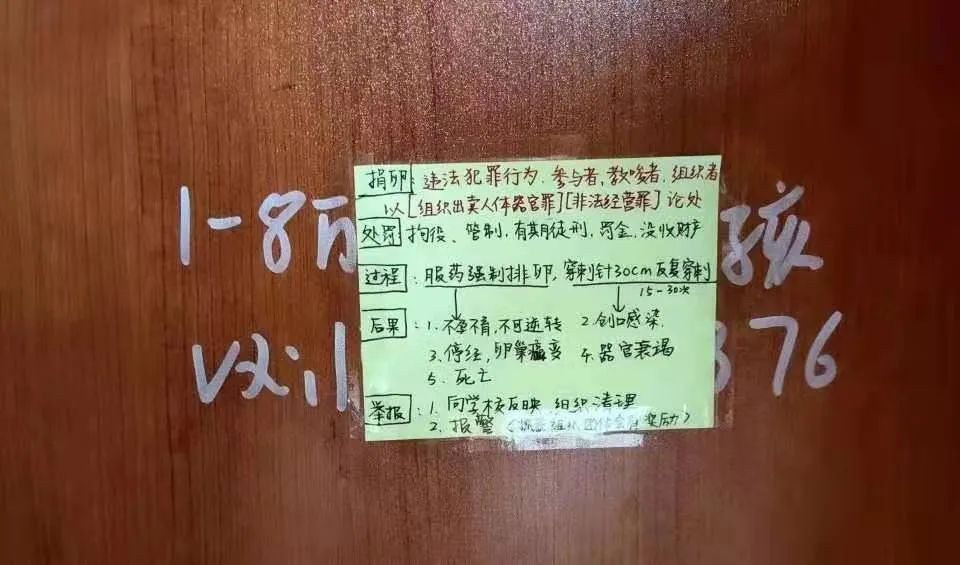 捐卵:违法犯罪行为.参与者,教唆者.组织者
以[组织出卖人体器官罪][非法经营罪]论处
处罚 拘役、管制,有期徒刑,罚金,没收财产
过程:服药强制排卵,穿刺针30cm反复穿刺
15-30次
后果:1.不孕不育,不可逆转 2.创口感染.
3.停经,卵巢癌变 4.器官衰竭
5.死亡
举报:1.向学校反映 组织清理
2.报警 奖励)
1-8万 孩
376